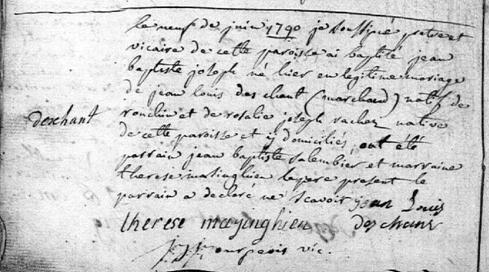 le neuf de juin 1790 je soussigné pretre et
vicaire de cette paroisse ai baptisé jean
baptiste joseph né hier en legitime mariage
de jean louis des chant (marchand) natif de
ronchin et de rosalie joseph vachez native
deschant
de cette paroisse et y domiciliés, ont eté
parrain jean baptiste Salembier et marraine
therese masinghien le pere present le
parrain a declaré ne scavoir jean Louis
therese masinghien deschant
bourgeois vic.